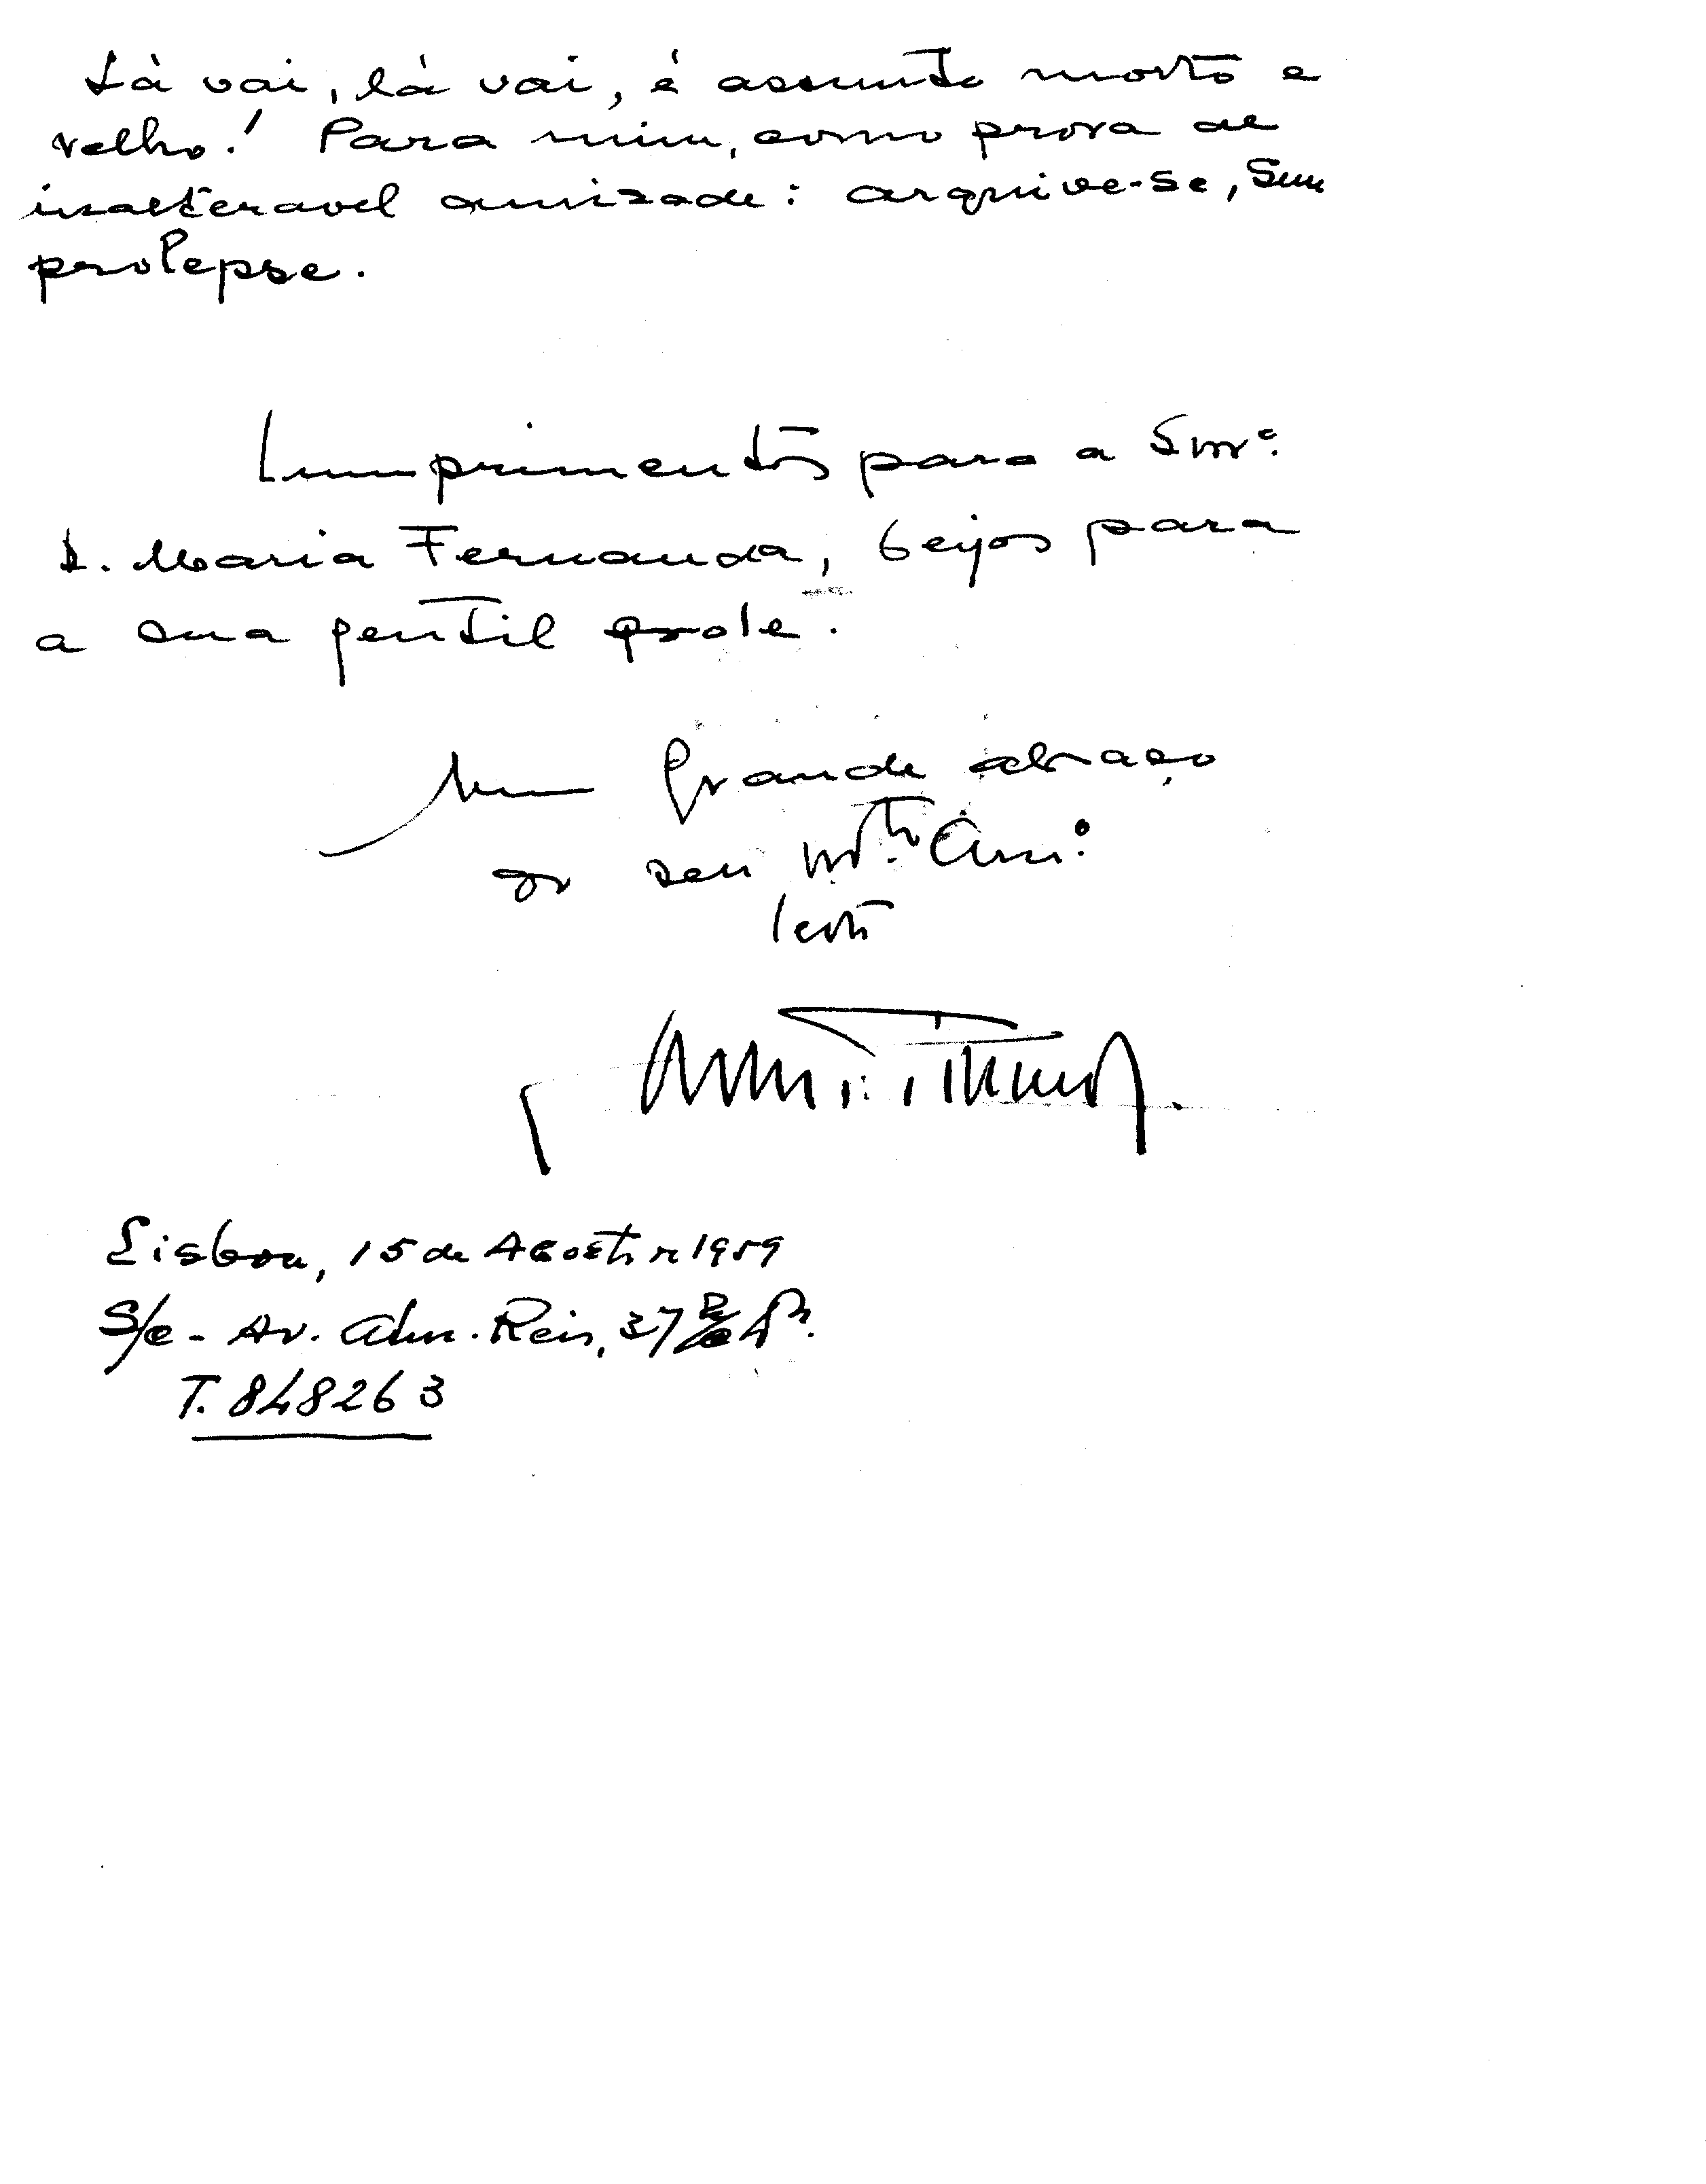 Lá vai, lá vai, é assunto morto e
velho! Para mim, como prova de
inalteravel amizade: arquive-se, sem
prolepse.
Cumprimentos para a Snrª.
D. Maria Fernanda, beijos para
a sua gentil prole.
Um grande abraço
do seu mtº. Amº.
Lisboa, 15 de Agosto de 1959
S/c - Av. Alm. Reis, 37
T. 848263